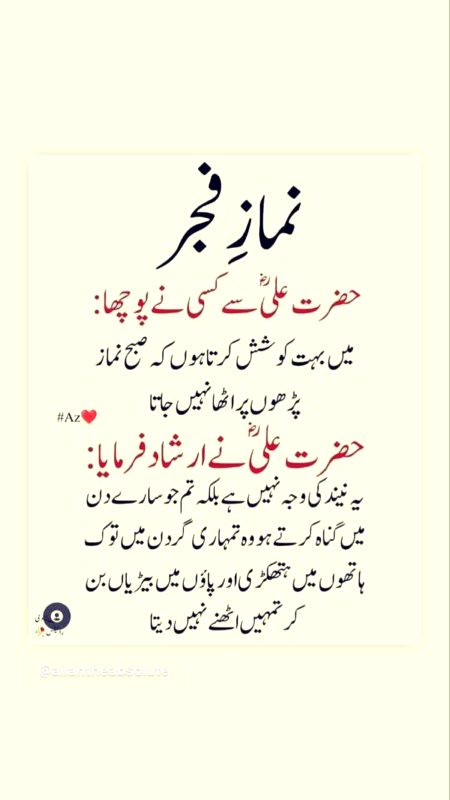 نمازِ فجر
حضرت علیؓ سے کسی نے پوچھا:
میں بہت کوشش کرتا ہوں کہ صبح نماز
پڑھوں پر اٹھا نہیں جاتا
#Az❤️
حضرت علیؓ نے ارشاد فرمایا:
یہ نیند کی وجہ نہیں ہے بلکہ تم جو سارے دن
میں گناہ کرتے ہو وہ تمہاری گردن میں توک
ہاتھوں میں ہتھکڑی اور پاؤں میں بیڑیاں بن
کر تمہیں اٹھنے نہیں دیتا